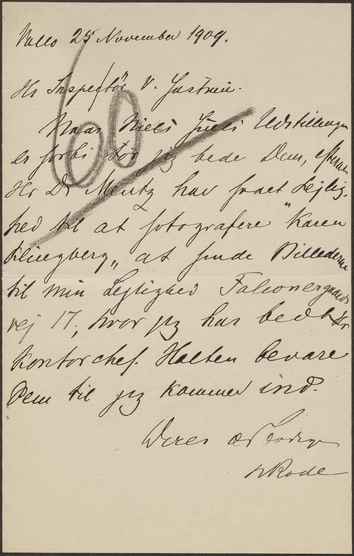 Vallø 25 November 1909.
60
Hr Inspektør V. Hastrein.
Naar Niels Juels Udstillingen
er forbi tør jeg bede Dem, efterat
Hr Dr Mentz har faaet Lejlig-
hed til at fotografere "Karen
Klingberg„ at sende Billederne
til min Lejlighed Falconergaards
vej 17, hvor jeg har bedt Hr
Kontorchef. Halten bevare
Dem til jeg kommer ind.
Deres
Rode